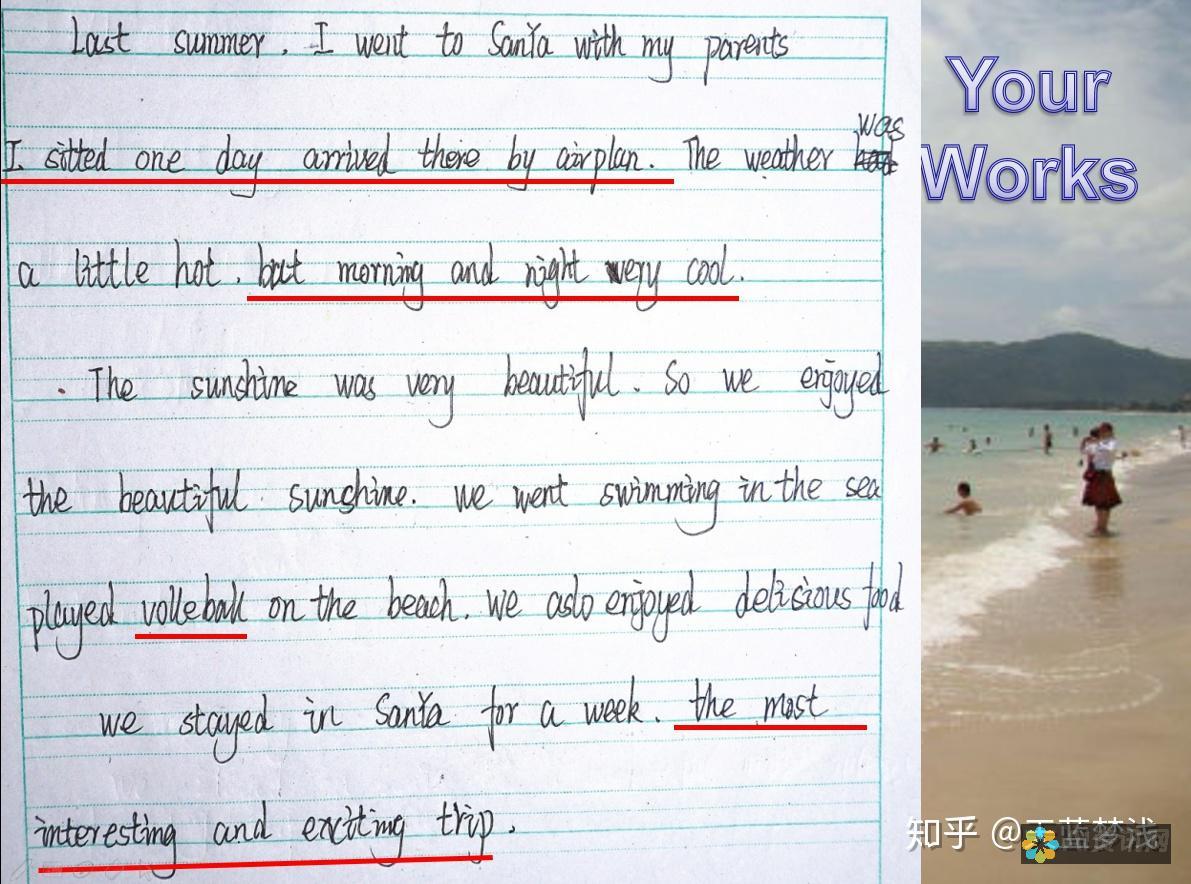 Last summer. I went to SanYa with my parents
I sitted one day arrived there by airplan. The weather was
a little hot. but morning and night very cool.
The sunshine was very beautiful. So we enjoyed
the beautiful sunshine. we went swimming in the sea
played volleball on the beach. we aslo enjoyed delisious food
we stayed in SanYa for a week. the most
interesting and exciting trip.
Your
Works
知乎 @